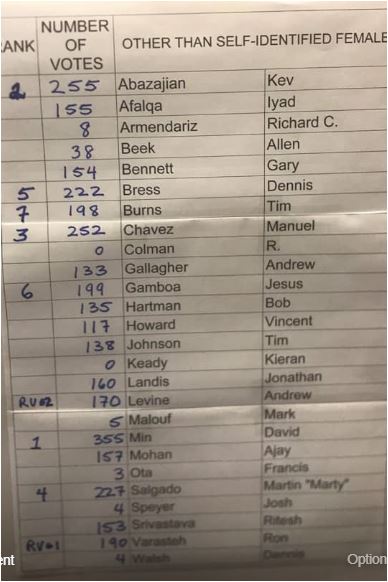 ANK NUMBER OF VOTES OTHER THAN SELF-IDENTIFIED FEMALE
2 255 Abazajian Kev
155 Afalqa Iyad
8 Armendariz Richard C.
38 Beek Allen
154 Bennett Gary
5 222 Bress Dennis
7 198 Burns Tim
3 252 Chavez Manuel
0 Colman R.
133 Gallagher Andrew
6 199 Gamboa Jesus
135 Hartman Bob
117 Howard Vincent
138 Johnson Tim
0 Keady Kieran
160 Landis Jonathan
RV02 170 Levine Andrew
5 Malouf Mark
1 355 Min David
157 Mohan Ajay
3 Ota Francis
4 227 Salgado Martin "Marty"
4 Speyer Josh
153 Srivastava Ritesh
RV01 190 Varasteh Ron
4 Walsh Dennis
ent Option